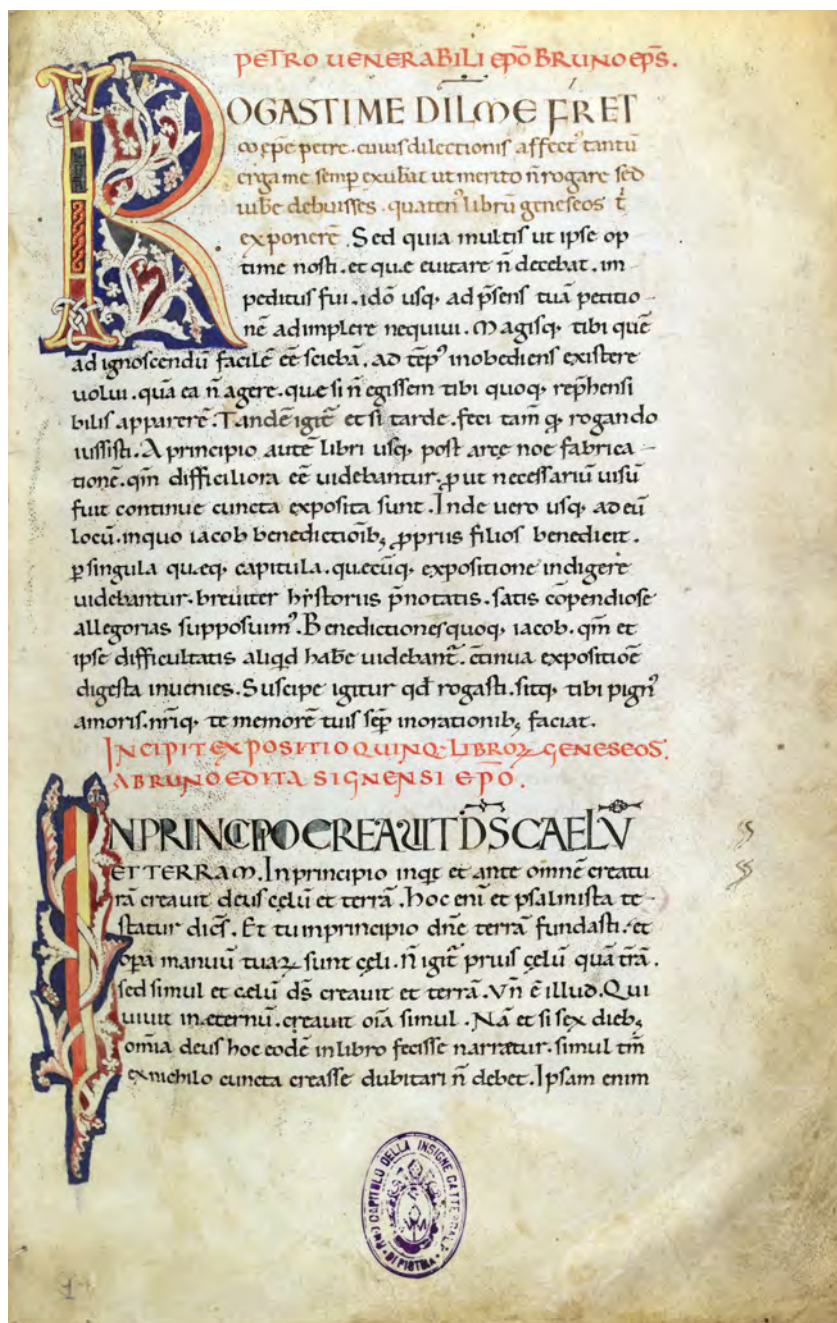 PETRO UENERABILI EP̄O BRUNO EP̄S.
ROGASTI ME DIL̄ME FR̄ ET
coep̄e petre. cuius dilectionis affect᾽ tantū
erga me semp̄ exub̄at ut merito n̄ rogare sed
iub̄e debuisses. quaten᾽ librū geneseos t̄
exponerē. Sed quia multis ut ipse op
time nosti. et quę euitare n̄ decebat. im
peditus fui. idō usq; ad p̄sens tuā petitio-
nē adimplere nequiui. Magisq; tibi quē
ad ignoscendū facilē eē sciebā. ad tēp᾽ inobediens existere
uolui. quā ea n̄ agere. quę si n̄ egissem tibi quoq; rep̄hensi
bilis apparerē. Tandē igit̄ et si tarde. feci tam̄ q̧ rogando
iussisti. A principio autē libri usq; post arcę noe fabrica-
tionē. qm̄ difficiliora eē uidebantur, ꝓut necessariū uisū
fuit continue cuncta exposita sunt. Inde uero usq; ad eū
locū. inquo iacob benedictiōib; ꝓpriis filios benedicit.
ꝑ singula quęq; capitula. quęcūq; expositione indigere
uidebantur. breuiter hystoriis p̄notatis. satis cōpendiose
allegorias supposuim᾽. Benedictiones quoq; iacob. qm̄ et
ipse difficultatis aliqd hab̄e uidebant̄. ctinua expositiōe
digesta inuenies. Suscipe igitur qd̄ rogasti. sitq; tibi pign᾽
amoris. nr̄iq; te memorē tuis sēp̄ inorationib; faciat.
INCIPIT EXPOSITIO QUINQ; LIBROꝜ GENESEOS.
A BRUNO EDITA SIGNENSI EP̄O.
IN PRINCIPIO CREAUIT D̄S CAELŪ
ET TERRAM. Inprincipio inqt et ante omnē creatu
rā creauit deus cęlū et terrā. hoc enī et psalmista te-
statur dic̄s. Et tu inprincipio dn̄e terrā fundasti. et
opa manuū tuaꝝ sunt cęli. n̄ igit̄ prius cęlū quā tr̄ā.
sed simul et cęlū d̄s creauit et terrā. Vn̄ ē illud. Qui
uiuit in ęternū. creauit oīa simul. Nā et si sex dieb;
om̄ia deus hoc eodē in libro fecisse narratur. simul tm̄
exnichilo cuncta creasse dubitari n̄ debet. Ipsam enim
CAPITOLO DELLA INSIGNE CATTEDRALE
DI PISTOIA
1